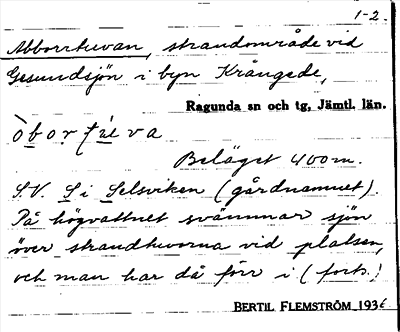 1-2.
Abborrtuvan, strandområde vid
Gesundsjön i byn Krångede,
Ragunda sn och tg, Jämtl. län.
Beläget 400 m.
S.V. S i Selsviken (gårdnamnet).
På högvattnet svämmar sjön
över strandtuvorna vid platsen,
och man har då förr i (forts.)
BERTIL FLEMSTRÖM 1936